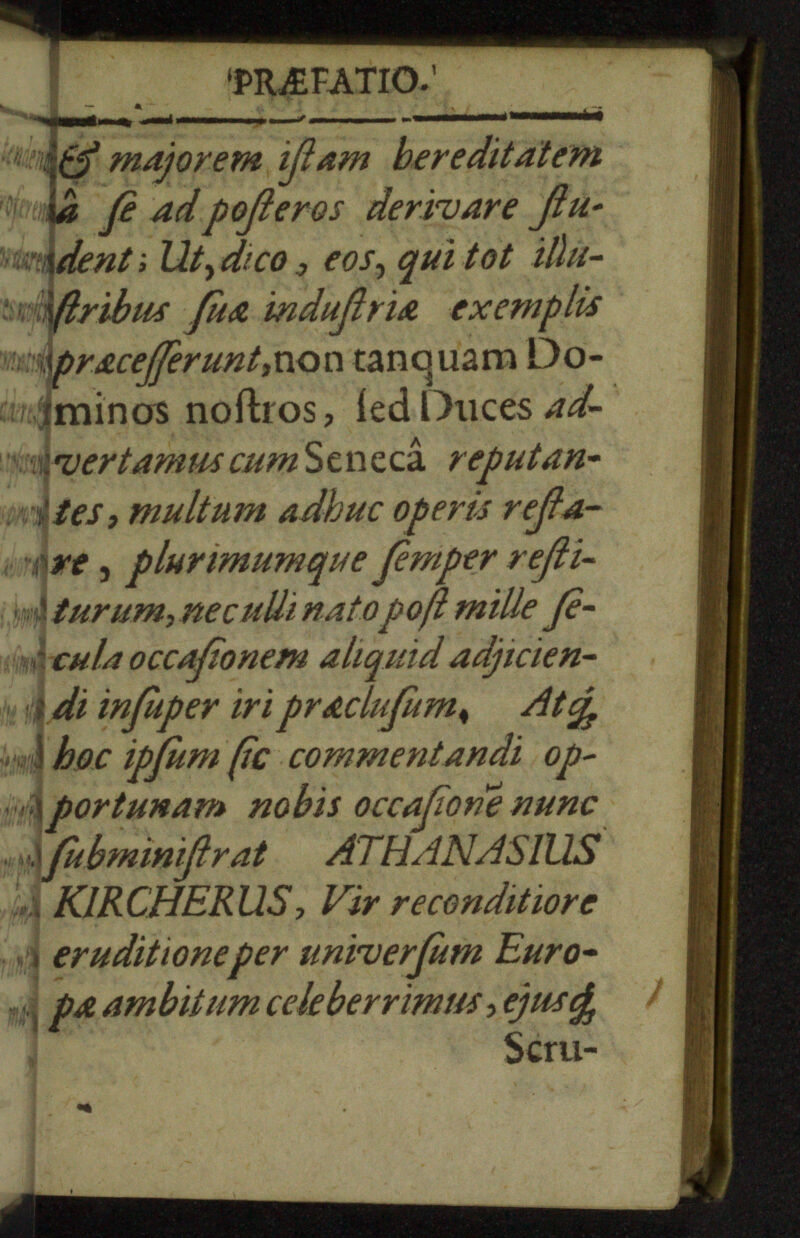 PRÆFATIO.
& majorem iſtam hereditatem
â ſe ad poſteros derivare ſtu-
dent; Ut, dico, eos, qui tot illu-
ſtribus ſuæ induſtriæ exemplis
præceſſerunt, non tanquam Do-
minos noſtros, ſed Duces ad-
vertamus cum Senecâ reputan-
tes, multum adhuc operis reſta-
re, plurimumque ſemper reſti-
turum, nec ulli nato poſt mille ſe-
cula occaſionem aliquid adjicien-
di inſuper iri præcluſum. Atq;
hoc ipſum ſic commentandi op-
portunam nobis occaſionē nunc
ſubminiſtrat ATHANASIUS
KIRCHERUS, Vir reconditiore
eruditione per univerſum Euro-
pæ ambitum celeberrimus, ejusq;
Scru-